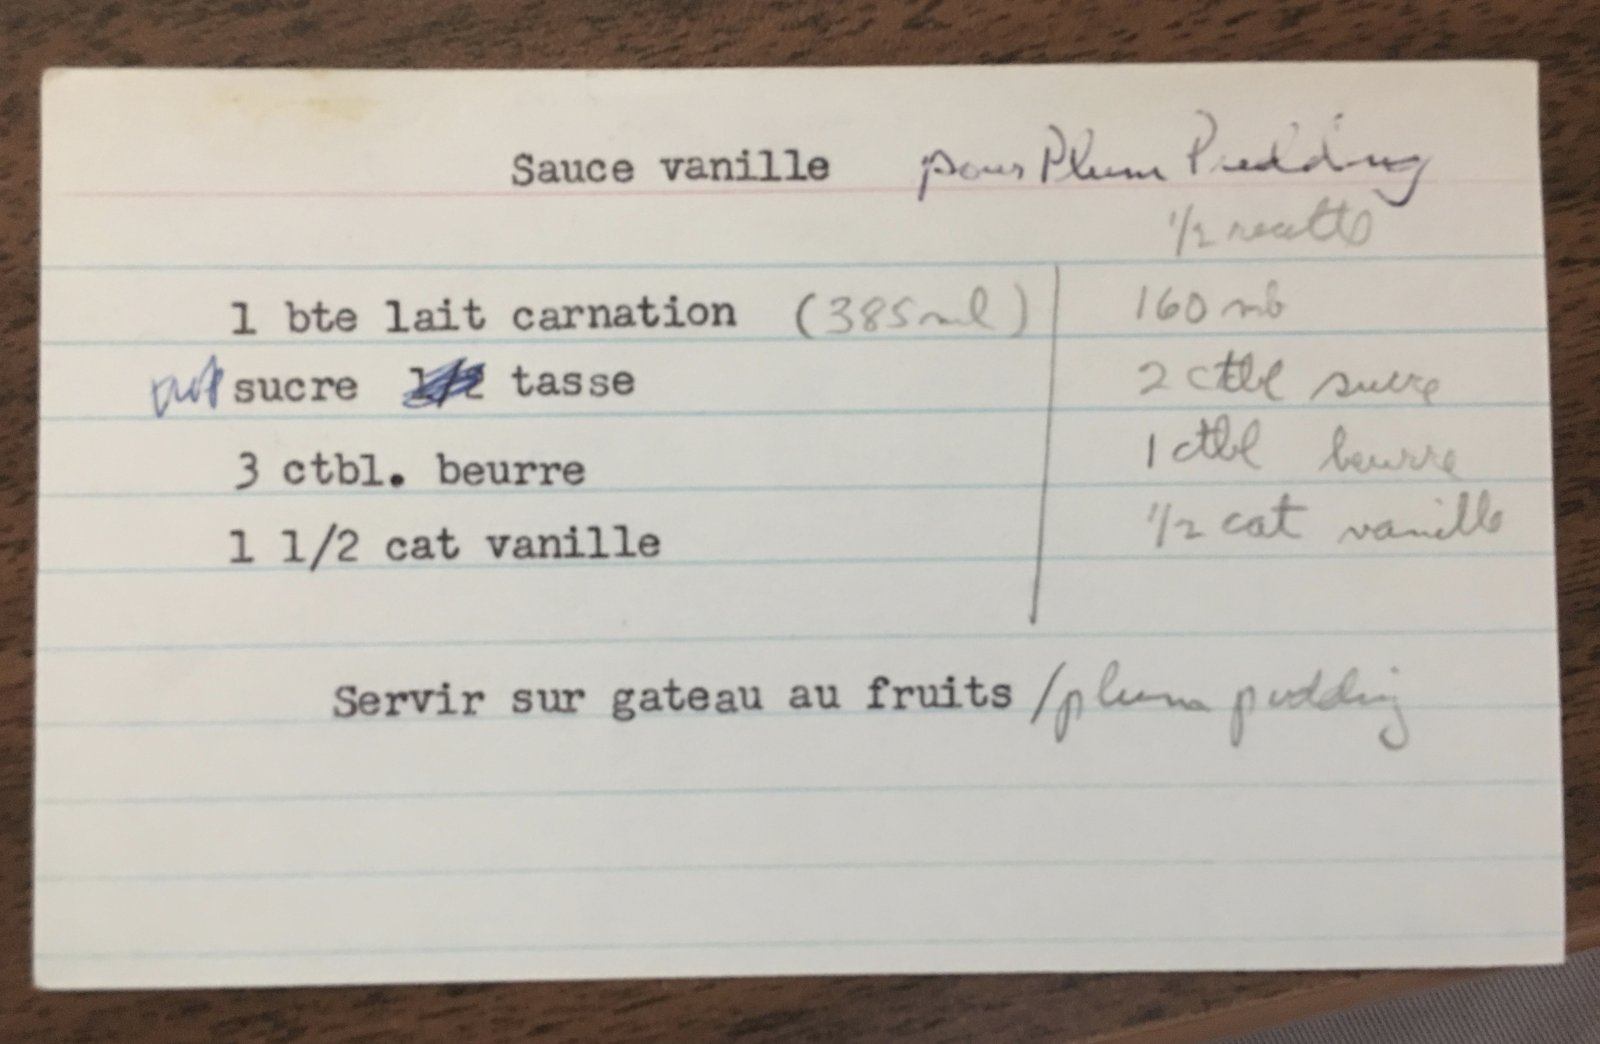 Sauce vanille pour Plum Pudding
1/2 recette
1 bte lait carnation (385 ml) 160 ml
sucre 1/2 tasse 2 ctbl sucre
3 ctbl. beurre 1 ctbl beurre
1 1/2 cat vanille 1/2 cat vanille
Servir sur gateau au fruits / plum pudding